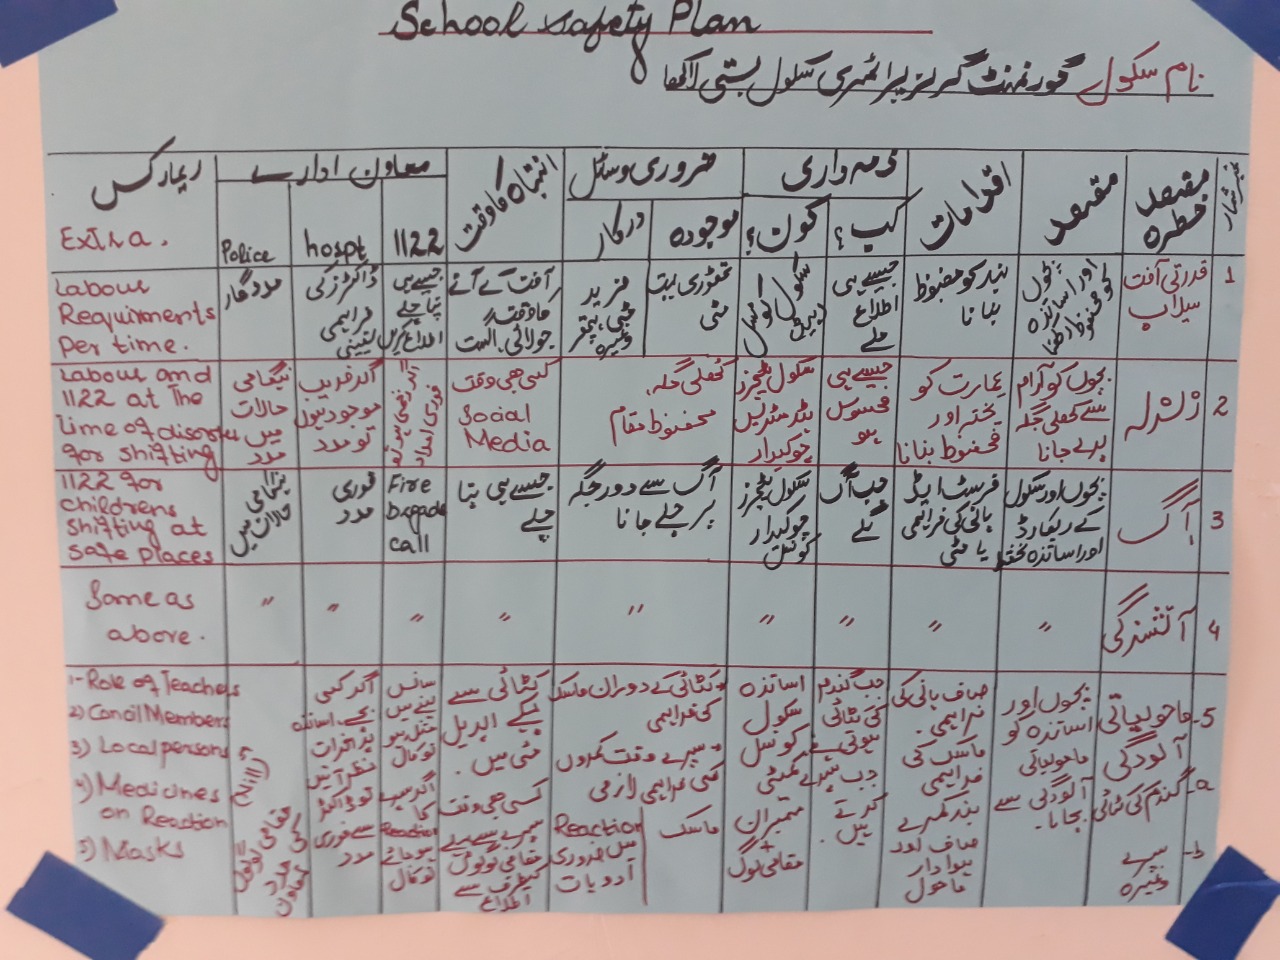 School Safety Plan
نام سکول گورنمنٹ گرلز پرائمری سکول بستی لاکھا
نمبر شمار
مقصد
خطرہ
مقصد
اقدامات
ذمہ داری
کب؟
کون؟
ضروری وسائل
موجودہ
درکار
انتباہ کا وقت
معاون ادارے
1122
hospt
Police
ریمارکس
Extra.
1
قدرتی آفت
سیلاب
بچوں
اور اساتذہ
کو محفوظ رکھنا
بند کو مضبوط
بنانا
جیسے ہی
اطلاع
ملے
سکول کونسل
کمیٹی
تھوڑی بہت
مٹی
مزید
مٹی، پتھر
وغیرہ
آفت کے آنے
کا وقت
جولائی اگست
جیسے ہی
پتا چلے
اطلاع کریں
ڈاکٹرز کی
فراہمی
یقینی
مددگار
Labour
Requirments
Per time.
2
زلزلہ
بچوں کو آرام
سے کھلی جگہ
پر لے جانا
عمارت کو
پختہ اور
محفوظ بنانا
جیسے ہی
محسوس
ہو
سکول ٹیچرز
ہیڈ مسٹریس
چوکیدار
کھلی جگہ
محفوظ مقام
کسی بھی وقت
Social
Media
اگر زخمی ہو تو
فوری امداد
اگر قریب
موجود ہوں
تو مدد
ہنگامی
حالات
میں
مدد
Labour and
1122 at The
Time of disorster
for shifting
3
آگ
بچوں اور سکول
کے ریکارڈ
اور اساتذہ تحفظ
فرسٹ ایڈ
پانی کی فراہمی
یا مٹی
جب آگ
لگے
سکول ٹیچرز
چوکیدار
کونسل
آگ سے دور جگہ
پر چلے جانا
جیسے ہی پتا
چلے
Fire
brigade
call
فوری
مدد
ہنگامی
حالات میں
1122 for
childrens
shifting at
safe places
4
آتشزدگی
"
"
"
"
"
"
"
"
"
Same as
above.
5-
ماحولیاتی
آلودگی
a-
گندم کی کٹائی
b-
سپرے
وغیرہ
بچوں اور
اساتذہ کو
ماحولیاتی
آلودگی سے
بچانا۔
صاف پانی کی
فراہمی۔
ماسک کی
فراہمی
بند کمرے
صاف اور
ہوادار
ماحول
جب گندم
کی کٹائی
ہوتی ہے
جب سپرے
کرتے
ہیں۔
اساتذہ
سکول
کونسل
کمیٹی
ممبران
+
مقامی لوگ
کٹائی کے دوران ماسک
کی فراہمی
سپرے وقت کمروں
کی فراہمی لازمی
ماسک
Reaction
میں ضروری
ادویات
کٹائی سے
پہلے اپریل
مئی میں۔
کسی بھی وقت
سپرے سے پہلے
مقامی لوگوں
کیطرف سے
اطلاع
سانس
لینے میں
مشکل ہو
تو کال
اگر سپرے
کا
Reaction
ہو جائے
تو کال
اگر کسی
بچے، اساتذہ
پر اثرات
نظر آئیں
تو ڈاکٹر
سے فوری
مدد
مقامی لوگوں
کی مدد
تعاون
1- Role of Teachers
2) Concil Members
3) Local persons
4) Medicines
on Reaction
5) Masks